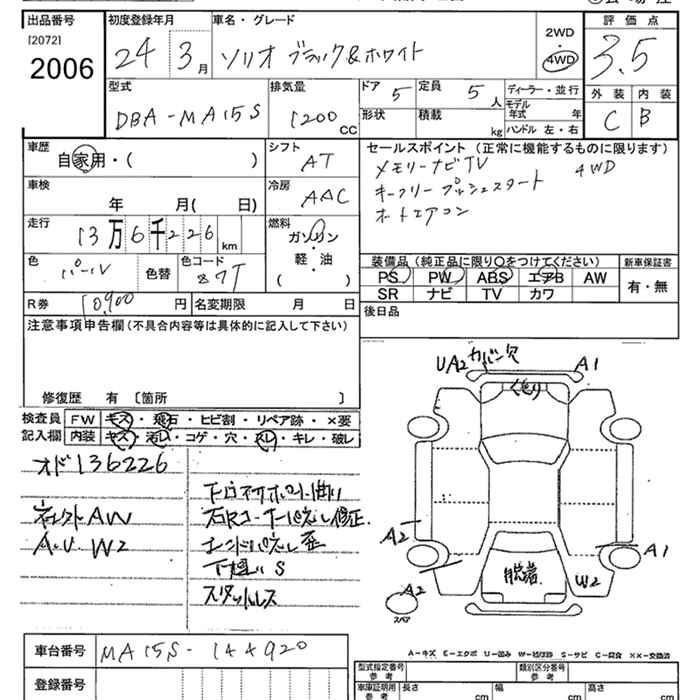 出品番号 初度登録年月 車名・グレード 2WD 評価点
[2072]
2006 24 3月 ソリオ ブラック&ホワイト 4WD 3.5
型式 排気量 ドア 5 定員 5人 ディーラー・並行 外装 内装
DBA-MA15S 1200 CC 形状 積載 kg モデル年式 年 C B
ハンドル 左・右
車歴 シフト セールスポイント (正常に機能するものに限ります)
自家用・( ) AT メモリーナビTV 4WD
車検 冷房 キーフリープッシュスタート
年 月( 日) AAC オートエアコン
走行 燃料
13万6千226km ガソリン
・
軽・油
( )
色 色コード 装備品 (純正品に限り○をつけてください) 新車保証書
パール 色替 87T PS PW ABS エアB AW 有・無
SR ナビ TV カワ
R券 10,900円 名変期限 月 日 後日品
注意事項申告欄(不具合内容等は具体的に記入して下さい)
修復歴 有 〔箇所 〕
UA2 カバー欠 A1
検査員 FW キズ・飛石・ヒビ割・リペア跡・×要
記入欄 内装 キズ・汚レ・コゲ・穴・スレ・キレ・破レ
オド136226
A.U.W2
石Rコーナーパネル修正
エンドパネル歪
S
スタッドレス
A2 A1
脱着 W2
A2
スペア
A-キズ E-エクボ U-凹み W-補修跡 S-サビ C-腐食 XX-交換済
車台番号 MA15S-144920
登録番号
型式指定番号 参考 類別区分番号 参考
車庫証明用 参考 長さ cm 幅 cm 高さ cm